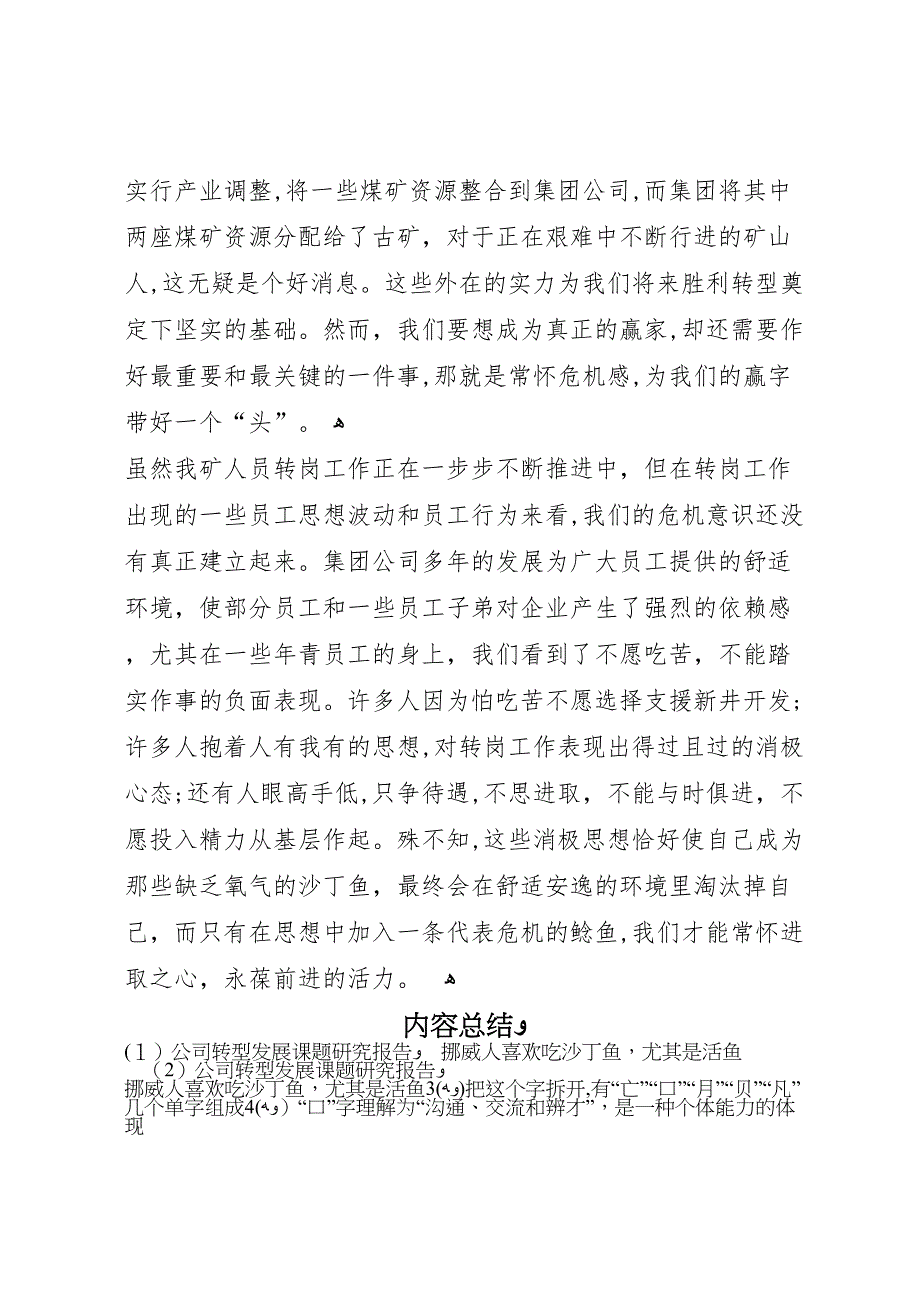 实行产业调整,将一些煤矿资源整合到集团公司,而集团将其中
两座煤矿资源分配给了古矿，对于正在艰难中不断行进的矿山
人,这无疑是个好消息。这些外在的实力为我们将来胜利转型奠
定下坚实的基础。然而，我们要想成为真正的赢家,却还需要作
好最重要和最关键的一件事,那就是常怀危机感,为我们的赢字
带好一个“头”。 ﻫ
虽然我矿人员转岗工作正在一步步不断推进中，但在转岗工作
出现的一些员工思想波动和员工行为来看,我们的危机意识还没
有真正建立起来。集团公司多年的发展为广大员工提供的舒适
环境，使部分员工和一些员工子弟对企业产生了强烈的依赖感
，尤其在一些年青员工的身上，我们看到了不愿吃苦，不能踏
实作事的负面表现。许多人因为怕吃苦不愿选择支援新井开发;
许多人抱着人有我有的思想,对转岗工作表现出得过且过的消极
心态;还有人眼高手低,只争待遇,不思进取，不能与时俱进，不
愿投入精力从基层作起。殊不知,这些消极思想恰好使自己成为
那些缺乏氧气的沙丁鱼，最终会在舒适安逸的环境里淘汰掉自
己，而只有在思想中加入一条代表危机的鲶鱼,我们才能常怀进
取之心，永葆前进的活力。 ﻫ
内容总结و
(１）公司转型发展课题研究报告و 挪威人喜欢吃沙丁鱼，尤其是活鱼
（2）公司转型发展课题研究报告و
挪威人喜欢吃沙丁鱼，尤其是活鱼3(ﻪو)把这个字拆开,有“亡”“口”“月”“贝”“凡”
几个单字组成4(ﻪو）“口”字理解为“沟通、交流和辨才”，是一种个体能力的体
现